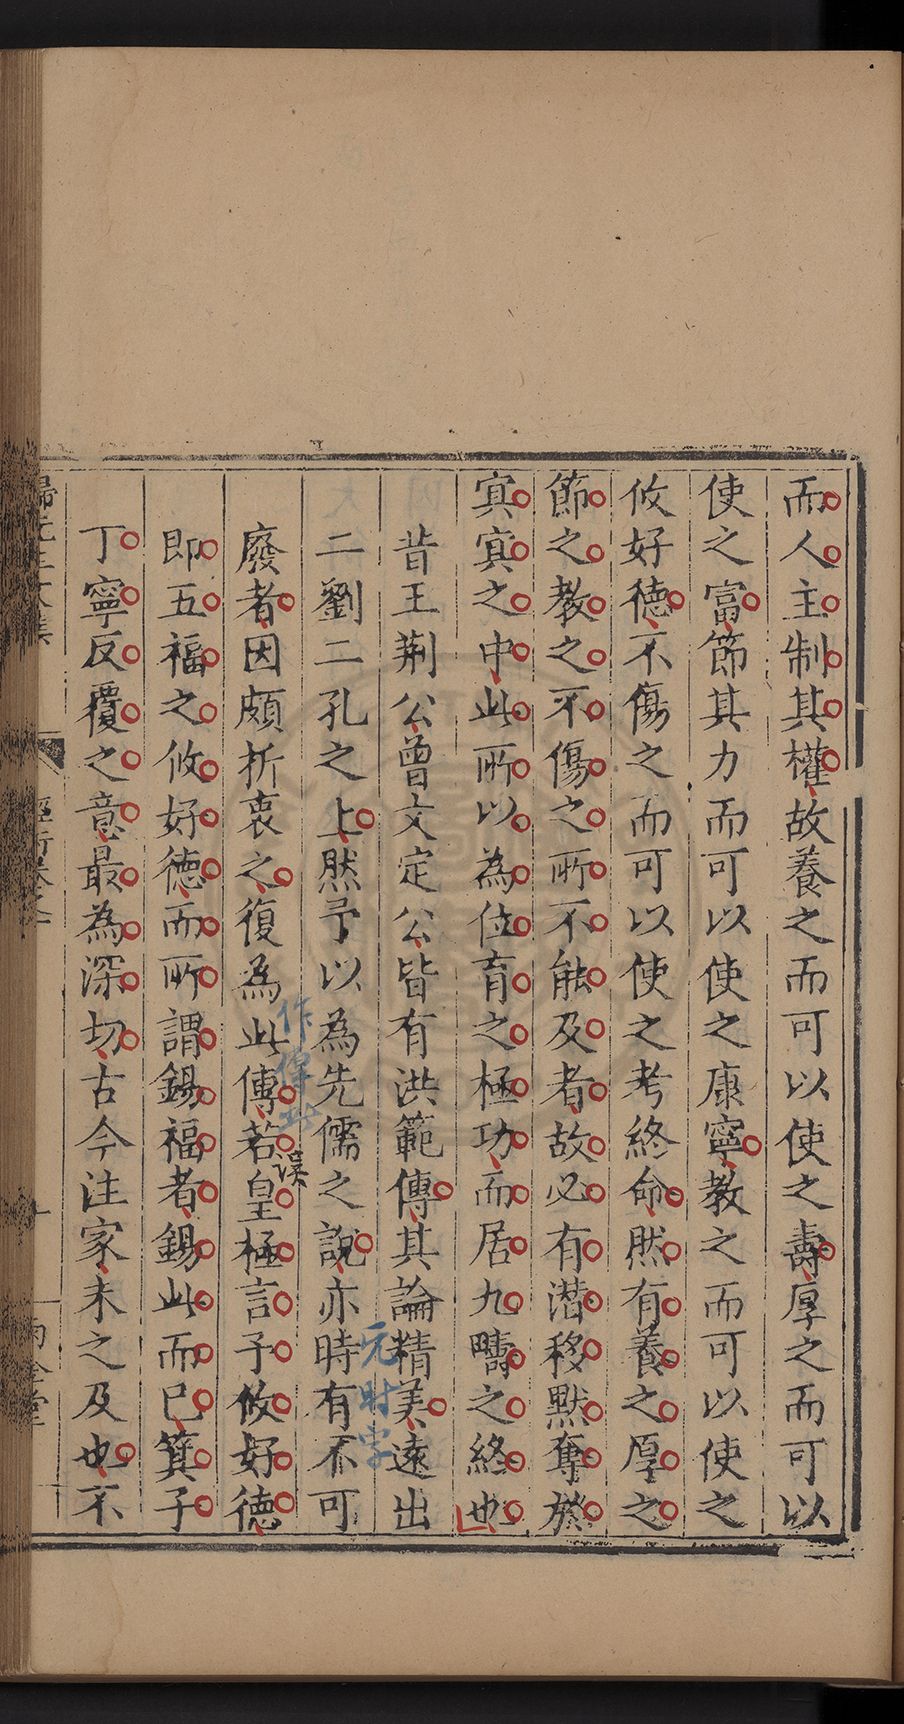 而人主制其權故養之而可以使之壽厚之而可以
使之富節其力而可以使之康寧教之而可以使之
攸好德不傷之而可以使之考終命然有養之厚之
節之教之不傷之所不能及者故必有潛移默奪於
冥冥之中此所以為位育之極功而居九疇之終也
昔王荆公曾文定公皆有洪範傳其論精美遠出
二劉二孔之上然予以為先儒之說亦時有不可
廢者因頗折衷之復為此傳若皇極言予攸好德
即五福之攸好德而所謂錫福者錫此而已箕子
丁寧反覆之意最為深切古今注家未之及也不
作傳
誤